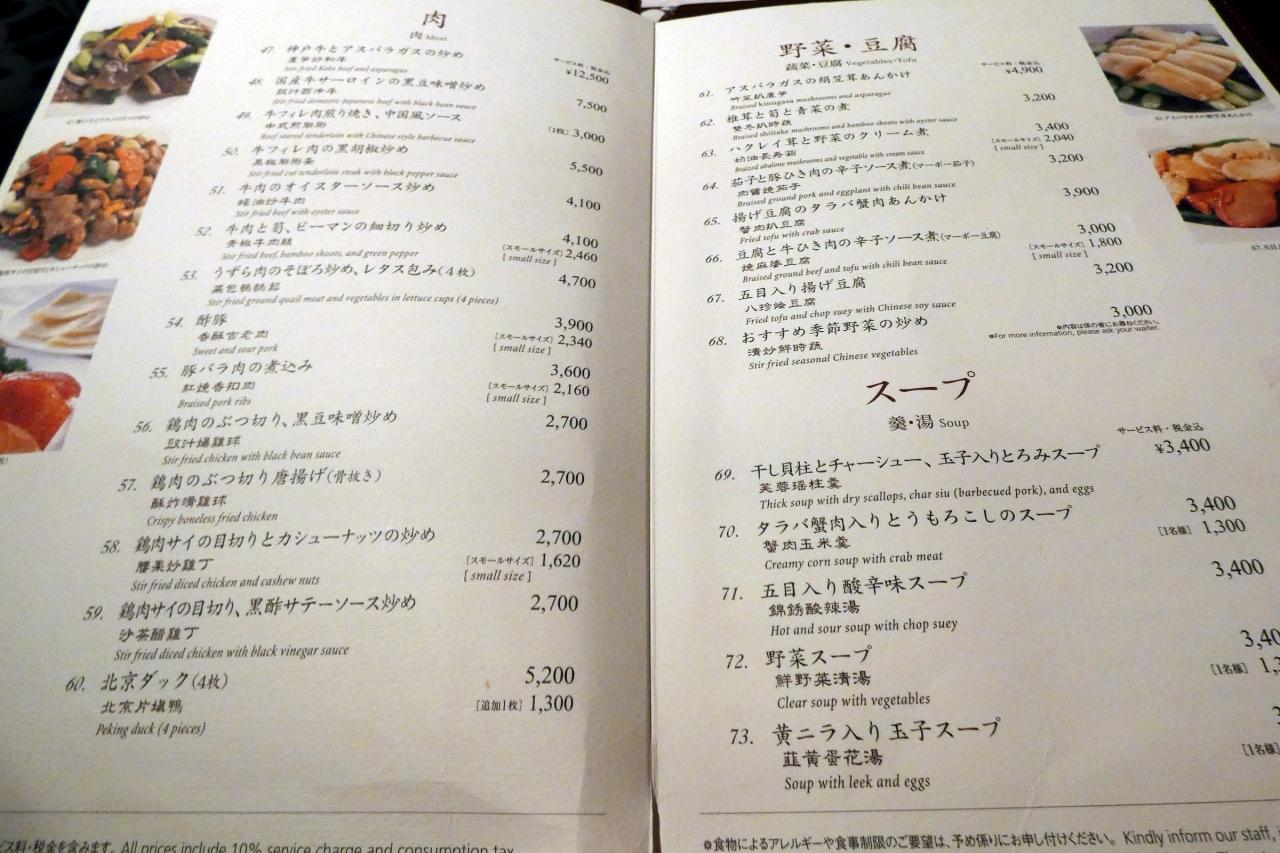 肉
肉 Meat
サービス料・税金込
47. 神戸牛とアスパラガスの炒め ¥12,500
蘆筍炒和牛
Stir fried Kobe beef and asparagus
48. 国産牛サーロインの黒豆味噌炒め 7,500
豉汁西冷牛
Stir fried domestic Japanese beef with black bean sauce
49. 牛フィレ肉煎り焼き、中国風ソース [1枚] 3,000
中式煎牛柳
Beef seared tenderloin with Chinese style barbecue sauce
50. 牛フィレ肉の黒胡椒炒め 5,500
Stir fried cut tenderloin steak with black pepper sauce
51. 牛肉のオイスターソース炒め 4,100
蠔油炒牛肉
Stir fried beef with oyster sauce
52. 牛肉と筍、ピーマンの細切り炒め 4,100
青椒牛肉絲 [スモールサイズ] 2,460
Stir fried beef, bamboo shoots, and green pepper [ small size ]
53. うずら肉のそぼろ炒め、レタス包み(4枚) 4,700
Stir fried ground quail meat and vegetables in lettuce cups (4 pieces)
54. 酢豚 3,900
香酥古老肉 [スモールサイズ] 2,340
Sweet and sour pork [ small size ]
55. 豚バラ肉の煮込み 3,600
紅燒香扣肉 [スモールサイズ] 2,160
Braised pork ribs [ small size ]
56. 鶏肉のぶつ切り、黒豆味噌炒め 2,700
豉汁爆雞球
Stir fried chicken with black bean sauce
57. 鶏肉のぶつ切り唐揚げ(骨抜き) 2,700
酥炸嘴雞球
Crispy boneless fried chicken
58. 鶏肉サイの目切りとカシューナッツの炒め 2,700
腰果炒雞丁 [スモールサイズ] 1,620
Stir fried diced chicken and cashew nuts [ small size ]
59. 鶏肉サイの目切り、黒酢サテーソース炒め 2,700
沙茶醋雞丁
Stir fried diced chicken with black vinegar sauce
60. 北京ダック(4枚) 5,200
北京片填鴨 [追加1枚] 1,300
Peking duck (4 pieces)
ビス料・税金を含みます。 All prices include 10% service charge and consumption tax
野菜・豆腐
蔬菜・豆腐 Vegetables・Tofu
サービス料・税金込
61. アスパラガスの絹笠茸あんかけ ¥4,900
竹笙扒蘆筍
Braised kinugasa mushrooms and asparagus
62. 椎茸と筍と青菜の煮 3,200
雙冬扒時蔬
Braised shiitake mushrooms and bamboo shoots with oyster sauce
63. ハクレイ茸と野菜のクリーム煮 3,400
奶油長寿菇 [スモールサイズ] 2,040
Braised abalone mushrooms and vegetable with cream sauce [ small size ]
64. 茄子と豚ひき肉の辛子ソース煮(マーボー茄子) 3,200
肉醤焼茄子
Braised ground pork and eggplant with chili bean sauce
65. 揚げ豆腐のタラバ蟹肉あんかけ 3,900
蟹肉扒豆腐
Fried tofu with crab sauce
66. 豆腐と牛ひき肉の辛子ソース煮(マーボー豆腐) 3,000
焼麻婆豆腐 [スモールサイズ] 1,800
Braised ground beef and tofu with chili bean sauce [ small size ]
67. 五目入り揚げ豆腐 3,200
八珍燴豆腐
Fried tofu and chop suey with Chinese soy sauce
68. おすすめ季節野菜の炒め 3,000
清炒鮮時蔬 ●内容は係の者にお尋ねください。
Stir fried seasonal Chinese vegetables ●For more information, please ask your waiter.
スープ
羹・湯 Soup
サービス料・税金込
69. 干し貝柱とチャーシュー、玉子入りとろみスープ ¥3,400
芙蓉瑶柱羹
Thick soup with dry scallops, char siu (barbecued pork), and eggs
70. タラバ蟹肉入りとうもろこしのスープ 3,400
蟹肉玉米羹 [1名様] 1,300
Creamy corn soup with crab meat
71. 五目入り酸辛味スープ 3,400
錦銹酸辣湯
Hot and sour soup with chop suey
72. 野菜スープ 3,40
鮮野菜清湯 [1名様] 1,3
Clear soup with vegetables
73. 黄ニラ入り玉子スープ
韮黄蛋花湯 [1名様]
Soup with leek and eggs
※食物によるアレルギーや食事制限のご要望は、予め係りにお申し付けください。 Kindly inform our staff,